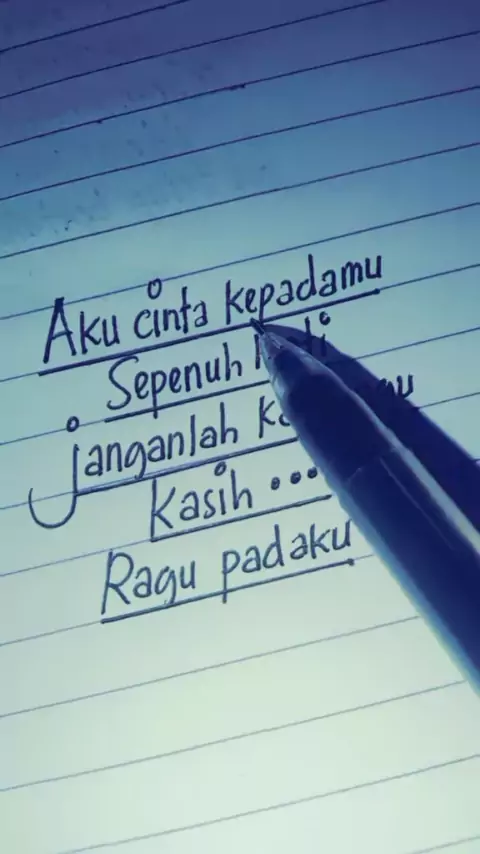 Aku cinta kepadamu
Sepenuh
janganlah
Kasih ...
Ragu padaku